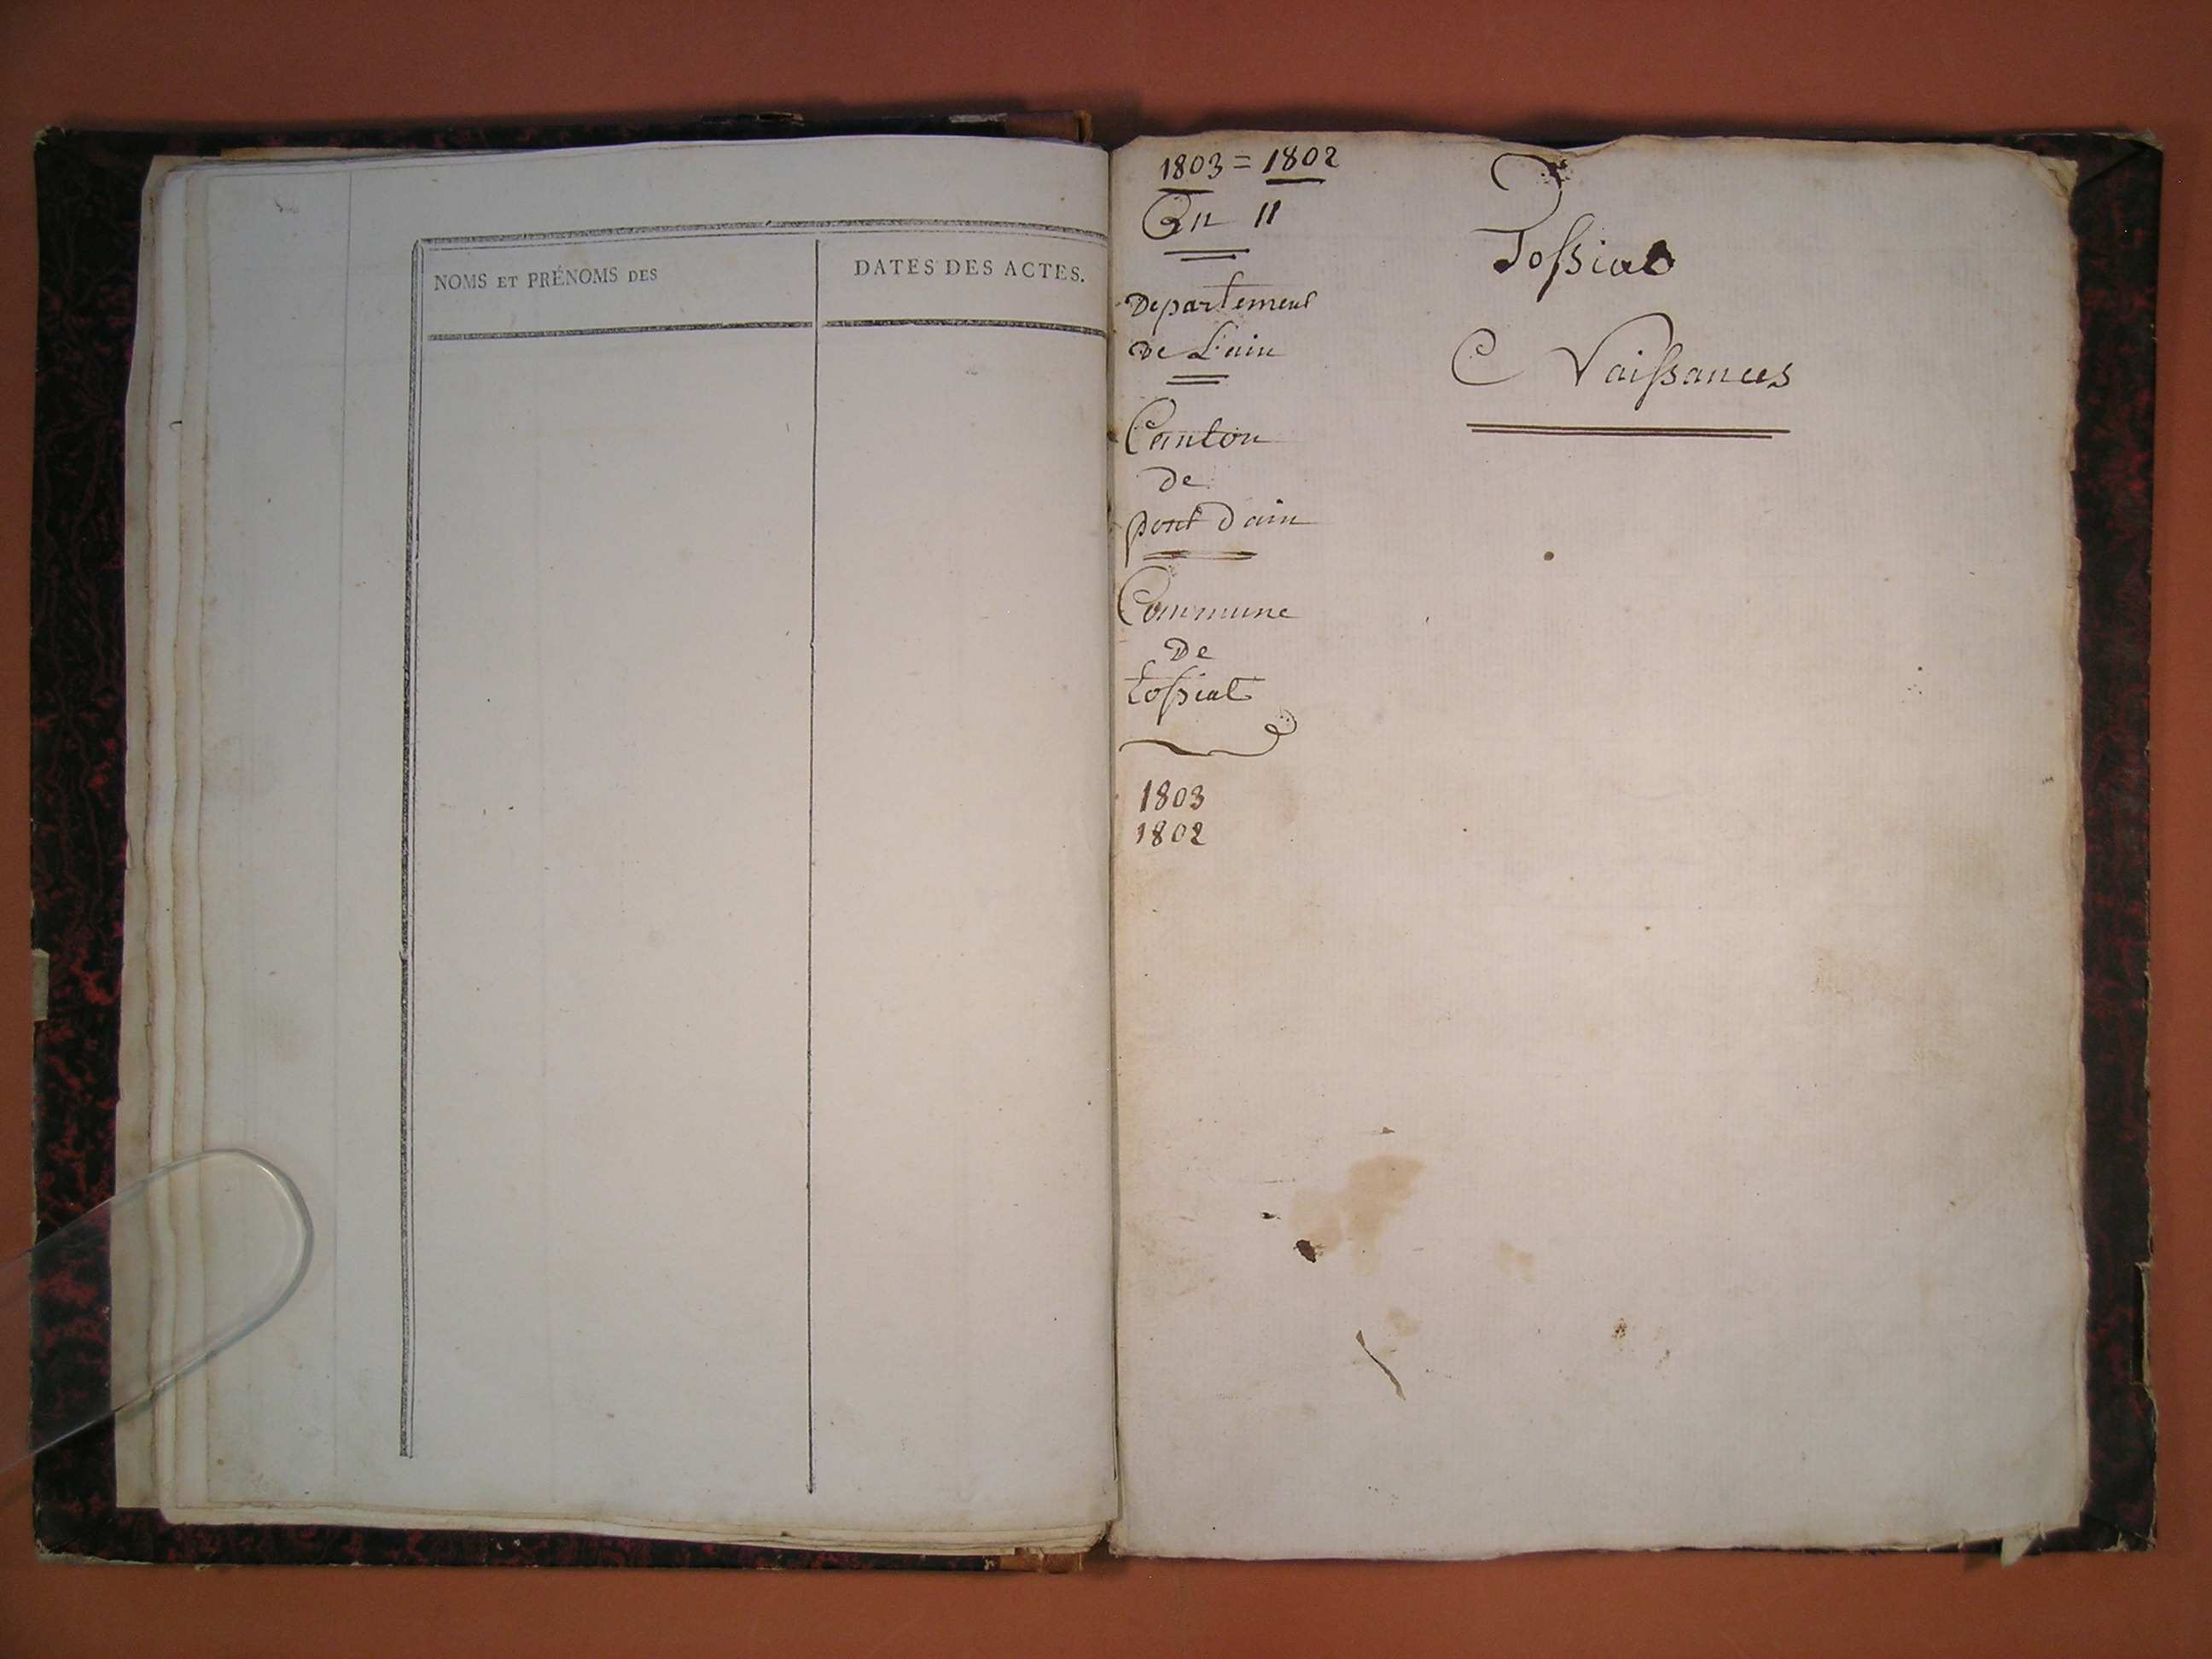 NOMS ET PRÉNOMS DES
DATES DES ACTES.
1803 = 1802
An 11
Departement
De L'ain
Canton
de
pont Dain
Commune
De
tossiat
1803
1802
Tossiat
Naissances